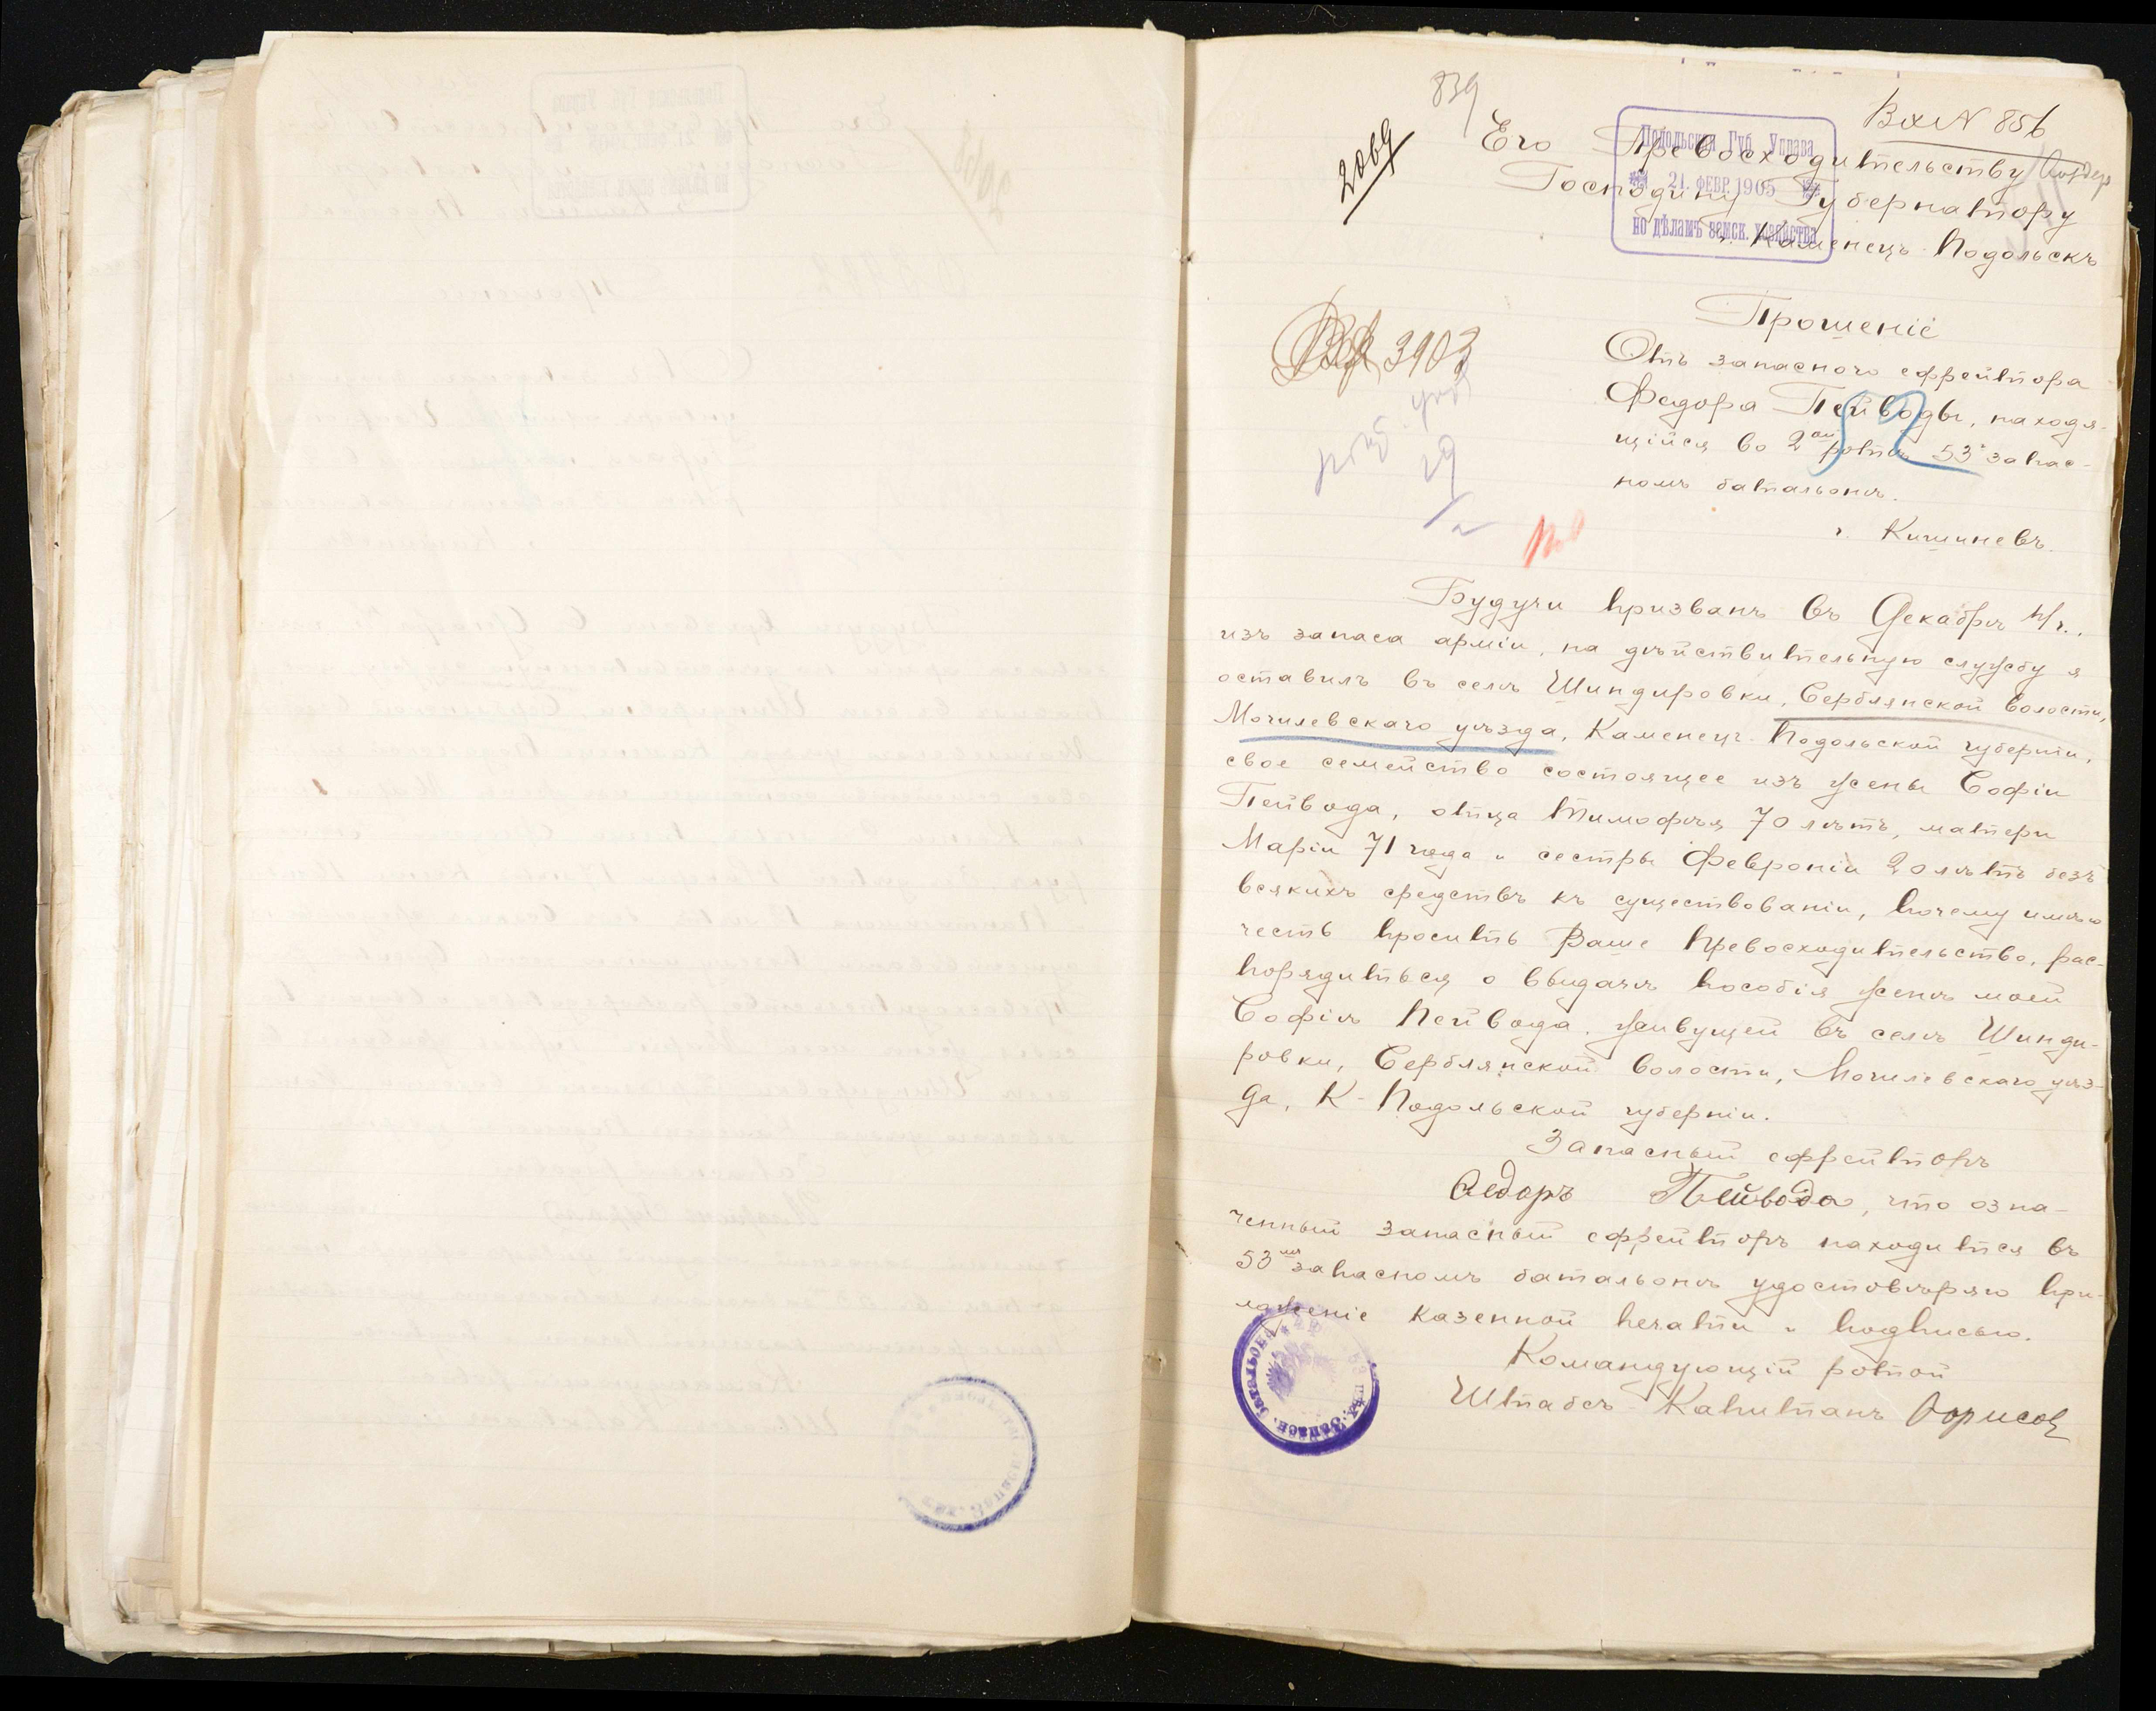 839
2069
Вх N 856
Подольская Губ. Управа
21. ФЕВР. 1905
по дѣламъ земск. хозяйства
Его Превосходительству
Господину Губернатору
г. Каменецъ-Подольскъ
Вх 3903
Прошеніе
Отъ запасного ефрейтора
Федора Пейводы, находя-
щійся во 2ой ротѣ 53 запас-
номъ батальонѣ.
г. Кишиневъ.
19
Будучи призванъ въ Декабрѣ п/г.,
изъ запаса арміи, на дѣйствительную службу я
оставилъ въ селѣ Шиндировки, Серблянской волости,
Могилевскаго уѣзда, Каменецъ-Подольской губерніи,
свое семейство состоящее изъ жены Софіи
Пейвода, отца Тимофѣя 70 лѣтъ, матери
Маріи 71 года и сестры Февроніи 20 лѣтъ безъ
всякихъ средствъ къ существованіи, почему имѣю
честь просить Ваше Превосходительство, рас-
порядиться о выдачѣ пособія женѣ моей
Софіѣ Пейвода. живущей въ селѣ Шинди-
ровки, Серблянской волости, Могилевскаго уѣз-
да, К-Подольской губерніи.
Запасный ефрейторъ
Федоръ Пейвода, что озна-
ченный запасный ефрейторъ находится въ
53мъ запасномъ батальонѣ удостовѣряю при-
ложеніе казенной печати и подписью.
Командующій ротой
Штабсъ-Капитанъ Борисов